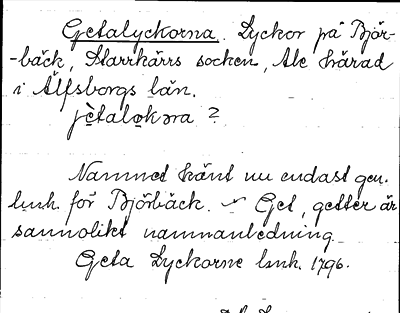 Getalyckorna. Lyckor på Björ-
-bäck, Starrkärrs socken, Ale härad
i Älfsborgs län.
jètalokɔra ?
Namnet känt nu endast gen.
lmh. för Björbäck. Get, getter är
sannolikt namnanledning
Geta Lyckorne lmh. 1796.